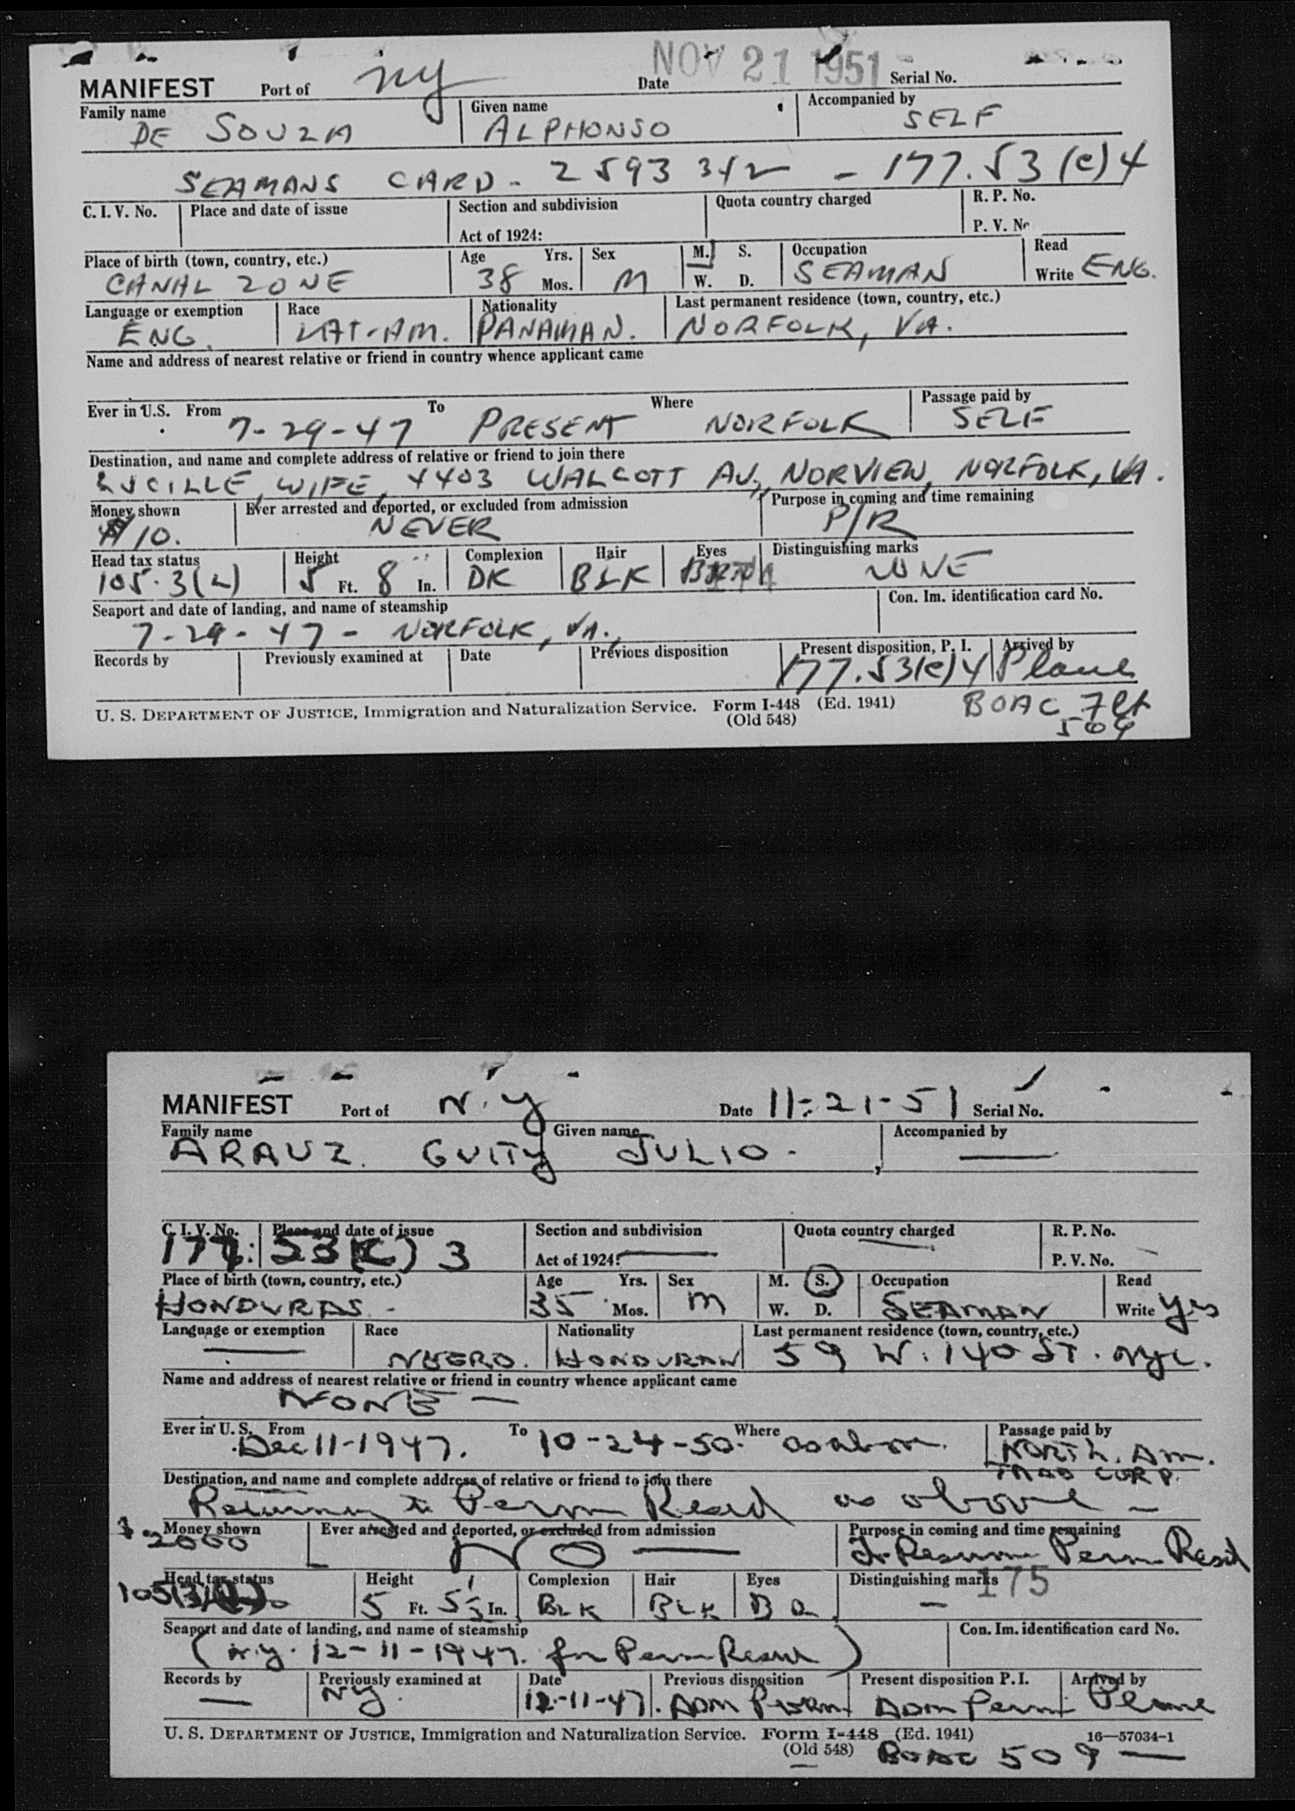 MANIFEST Port of NY Date NOV 21 1951 Serial No.
Family name Given name Accompanied by
DE SOUZA ALPHONSO SELF
SEAMANS CARD - 2593 342 - 177.53(e)4
C. I. V. No. Place and date of issue Section and subdivision Quota country charged R. P. No.
Act of 1924: P. V. No
Place of birth (town, country, etc.) Age Yrs. Sex M. S. Occupation Read
CANAL ZONE 38 Mos. M W. D. SEAMAN Write ENG.
Language or exemption Race Nationality Last permanent residence (town, country, etc.)
ENG. LAT-AM. PANAMAN. NORFOLK, VA.
Name and address of nearest relative or friend in country whence applicant came
Ever in U.S. From To Where Passage paid by
7-29-47 PRESENT NORFOLK SELF
Destination, and name and complete address of relative or friend to join there
LUCILLE, WIFE, 4403 WALCOTT AV., NORVIEW, NORFOLK, VA.
Money shown Ever arrested and deported, or excluded from admission Purpose in coming and time remaining
$10. NEVER P/R
Head tax status Height Complexion Hair Eyes Distinguishing marks
105.3(2) 5 Ft. 8 In. DK BLK NONE
Seaport and date of landing, and name of steamship Con. Im. identification card No.
7-29-47 - NORFOLK, VA.,
Records by Previously examined at Date Previous disposition Present disposition, P. I. Arrived by
177.53(e)4 Plane
U. S. DEPARTMENT OF JUSTICE, Immigration and Naturalization Service. Form I-448 (Ed. 1941) BOAC Flt
(Old 548) 509
MANIFEST Port of N.Y Date 11-21-51 Serial No.
Family name Given name Accompanied by
ARAUZ GUITY JULIO.
C. I. V. No. Place and date of issue Section and subdivision Quota country charged R. P. No.
177.53(C)3 Act of 1924: P. V. No. -
Place of birth (town, country, etc.) Age Yrs. Sex M. S. Occupation Read
HONDURAS - 35 Mos. M W. D. SEAMAN Write yes
Language or exemption Race Nationality Last permanent residence (town, country, etc.)
NEGRO. HONDURAN 59 W. 140 ST. NYC.
Name and address of nearest relative or friend in country whence applicant came
NONE -
Ever in U. S. From To Where Passage paid by
Dec 11-1947. 10-24-50. as above. NORTH. AM.
TRAD CORP.
Destination, and name and complete address of relative or friend to join there
Returning to Perm Resid as above -
Money shown Ever arrested and deported, or excluded from admission Purpose in coming and time remaining
$2000 NO To Resume Perm Resid
Head tax status Height Complexion Hair Eyes Distinguishing marks 175
5 Ft. In. BLK BLK -
Seaport and date of landing, and name of steamship Con. Im. identification card No.
(N.Y. 12-11-1947. for Perm Resid)
Records by Previously examined at Date Previous disposition Present disposition P. I. Arrived by
NY 12-11-47. ADM Perm ADM Perm Plane
U. S. DEPARTMENT OF JUSTICE, Immigration and Naturalization Service. Form I-448 (Ed. 1941) 16—57034-1
(Old 548) BOAC 509 -